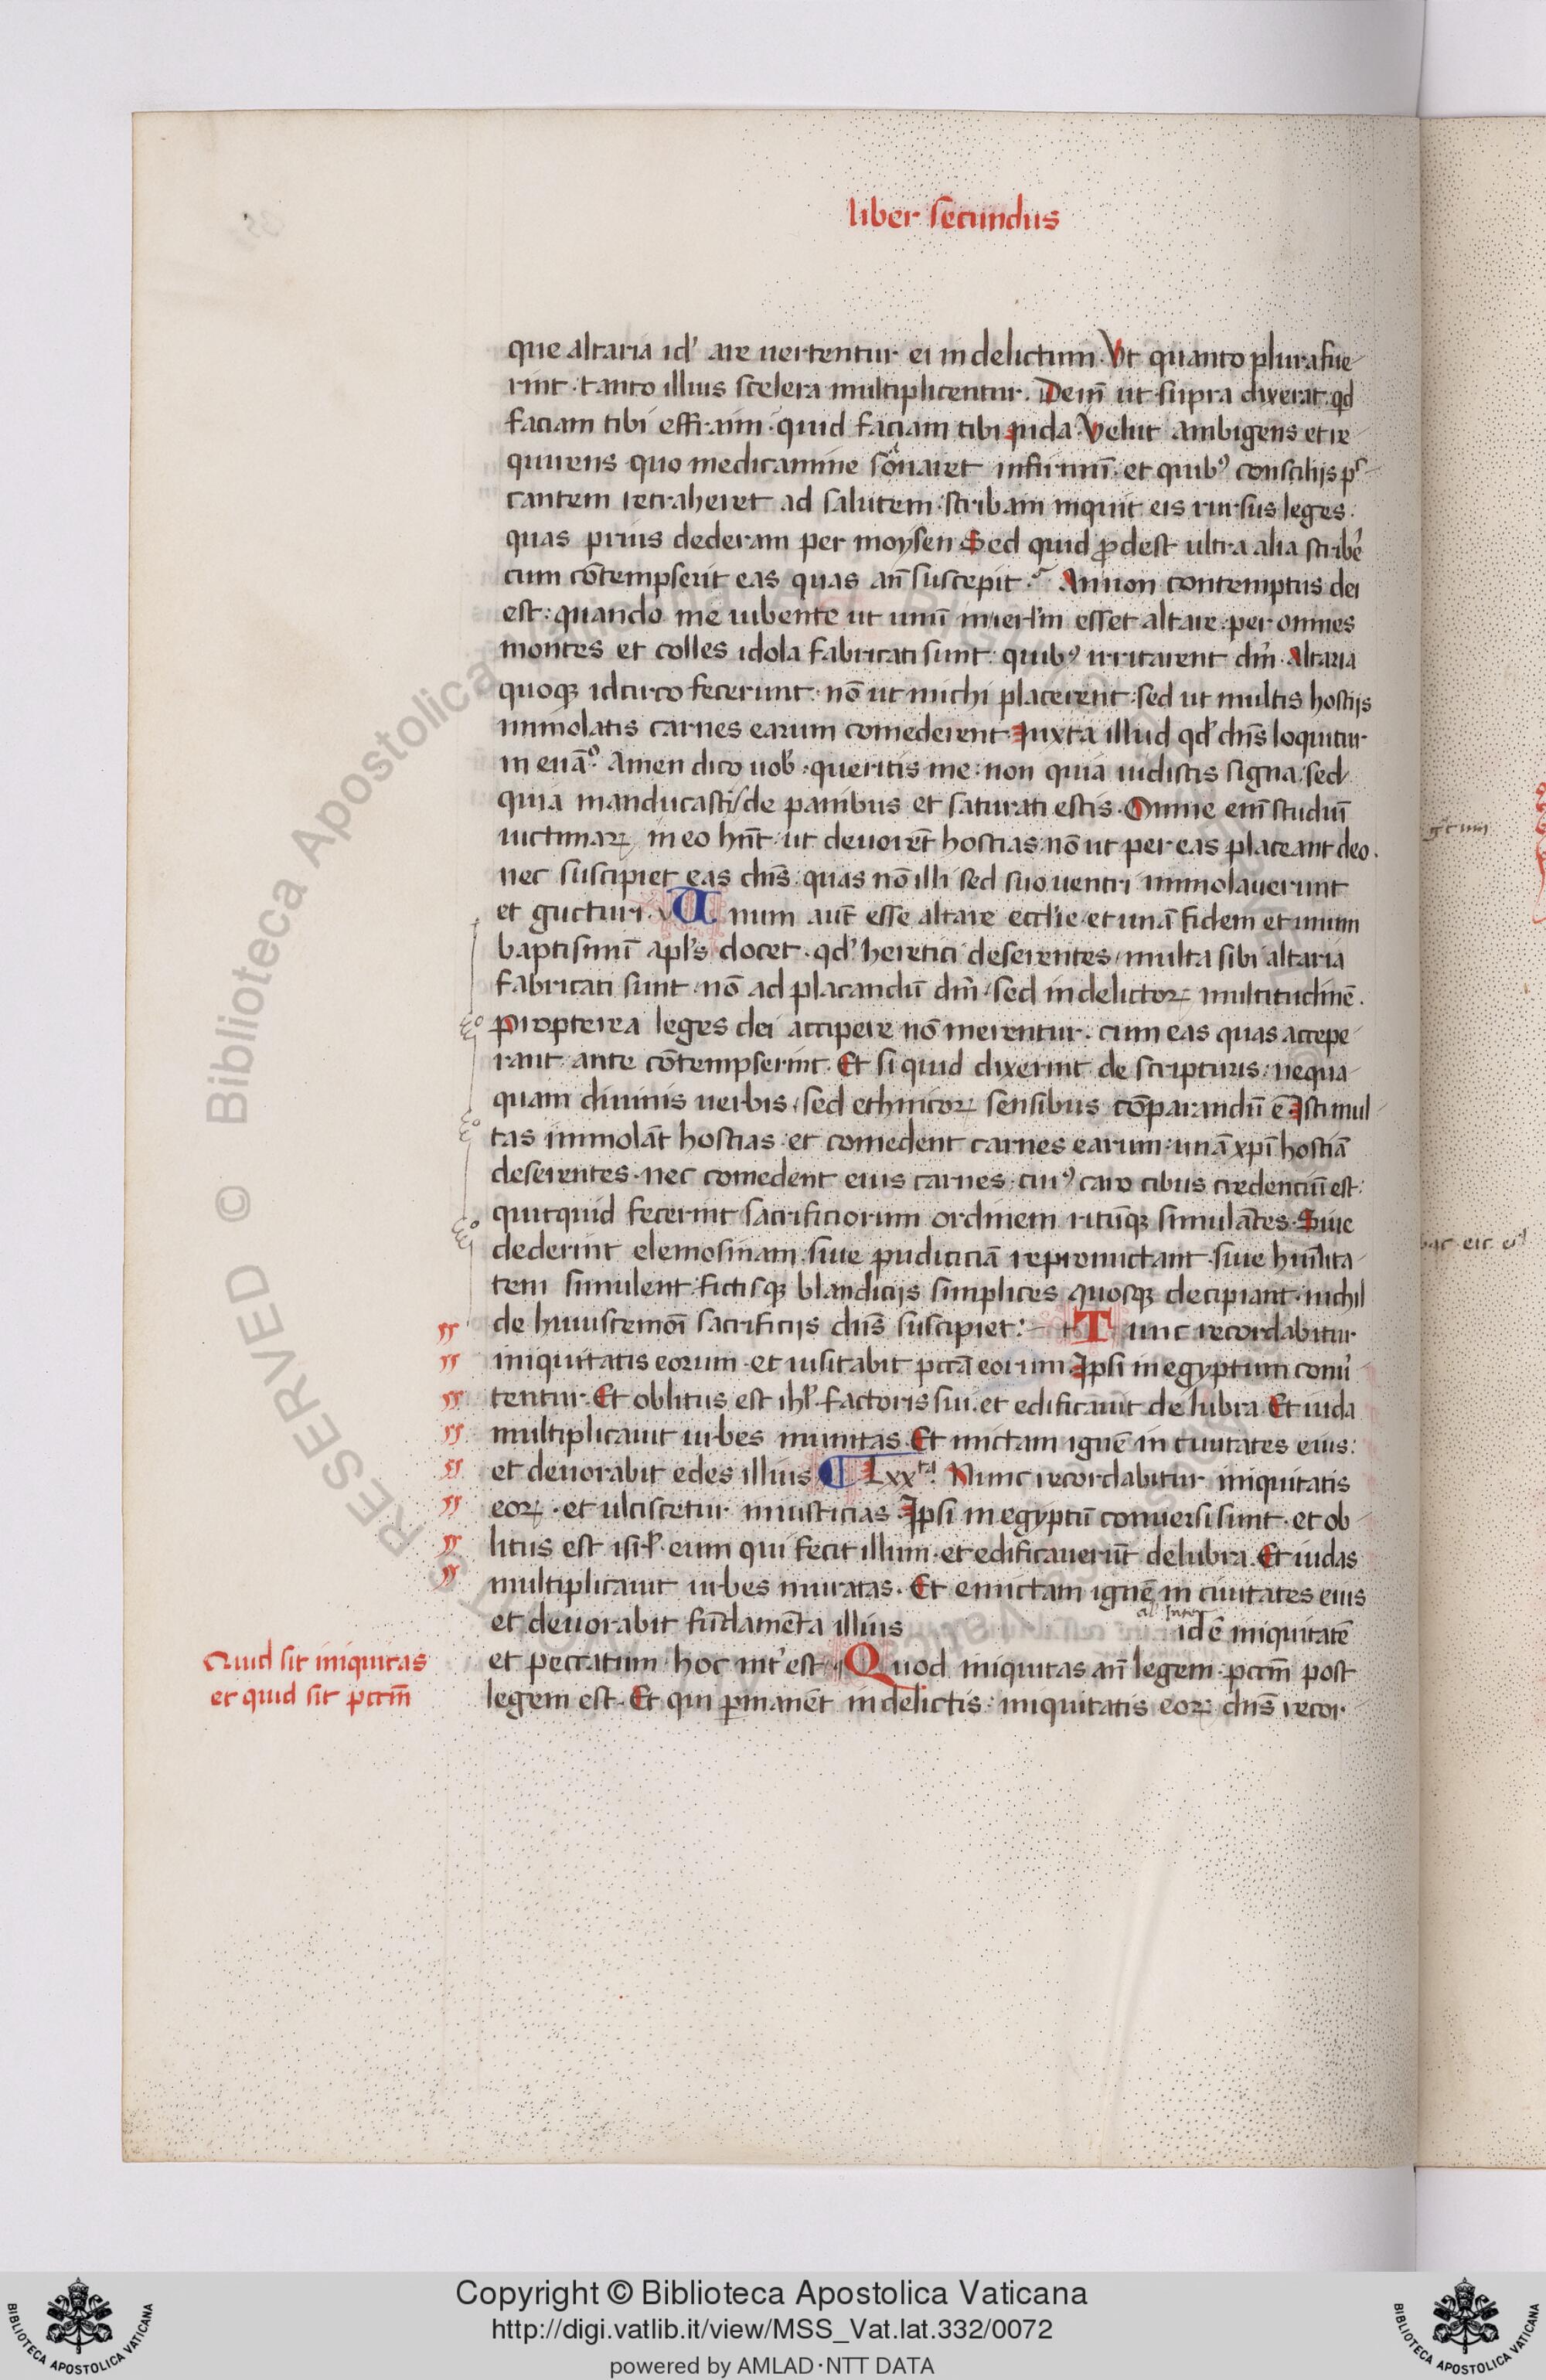 liber secundus
que altaria id' are uertentur ei in delictum. Vt quanto plura fue
rint. tanto illius scelera multiplicentur. Dein̄ ut supra dixerat. qd
faciam tibi effraim. quid faciam tibi iuda. Velut ambigens et re
quirens quo medicamine sanaret infirmū. et quib⁹ consilijs pc
cantem retraheret ad salutem. scribam inquit eis rursus leges.
quas prius dederam per moysen. Sed quid ꝓdest ultra alia scribe'
cum cōtempserit eas quas an̄ suscepit. Annon contemptus dei
est: quando me iubente ut unū in ierl'm esset altare. per omnes
montes et colles idola fabricati sunt. quib⁹ irritarent dm̄. Altaria
quoqꝫ idcirco fecerunt. nō ut michi placerent. sed ut multis hostijs
immolatis carnes earum comederent. Iuxta illud qd' dn̄s loquitur
in euā.º Amen dico uob'. queritis me. non quia uidistis signa. sed
quia manducasti/de panibus et saturati estis. Omne eni̅ studiū
uictimaꝝ in eo hn̄t. ut deuorēt hostias. nō ut per eas placeant deo.
nec suscipiet eas dn̄s. quas nō illi sed suo uentri immolauerunt
et gucturi. Vnum aut̄ esse altare eccl'ie. et unā fidem et unum
baptismū apl's docet. qd' heretici deserentes/multa sibi altaria
fabricati sunt. nō ad placandū dm̄. sed in delictoꝝ multitudinē.
Propterea leges dei accipere nō merentur. cum eas quas accepe
rant ante cōtempserint. Et si quid dixerint de scripturis. nequa
quam diuinis uerbis. sed ethnicoꝝ sensibus cōparandū ē. Isti mul
tas immolāt hostias. et comedent carnes earum. unā xpi̅ hostiā
deserentes. nec comedent eius carnes. cui⁹ caro cibus credenciū est.
quitquid fecerint sacrificiorum ordinem ritūqꝫ simulātes. Siue
dederint elemosinam. siue pudiciciā repromictant. siue hūilita
tem simulent. fictisqꝫ blandicijs simplices quosqꝫ decipiant. nichil
de huiuscemoi̅ sacrificijs dn̄s suscipiet: Tunc recordabitur
iniquitatis eorum. et uisitabit pcc̄a eorum. Ipsi in egyptum conu'
tentur. Et oblitus est ihl'. factoris sui. et edificauit delubra. Et iuda
multiplicauit urbes munitas. Et mictam ignē in ciuitates eius:
et deuorabit edes illius. Lxxᵗᵃ. Nunc recordabitur iniquitatis
eoꝝ. et ulciscetur iniusticias. Ipsi in egyptū conuersi sunt. et ob
litus est isrl'. eum qui fecit illum. et edificauerūt delubra. Et iudas
multiplicauit urbes muratas. Et emictam ignē in ciuitates eius
et deuorabit fūdamēta illius
al' Inter
idē iniquitatē
et peccatum. hoc int'est. Quod iniquitas an̄ legem. pccm̄ post
legem est. Et qui ꝑmanēt in delictis. iniquitatis eoꝝ dn̄s recor
Quid sit iniquitas
et quid sit pccm̄
Copyright © Biblioteca Apostolica Vaticana
http://digi.vatlib.it/view/MSS_Vat.lat.332/0072
powered by AMLAD·NTT DATA
BIBLIOTECA APOSTOLICA VATICANA
BIBLIOTECA APOSTOLICA VATICANA